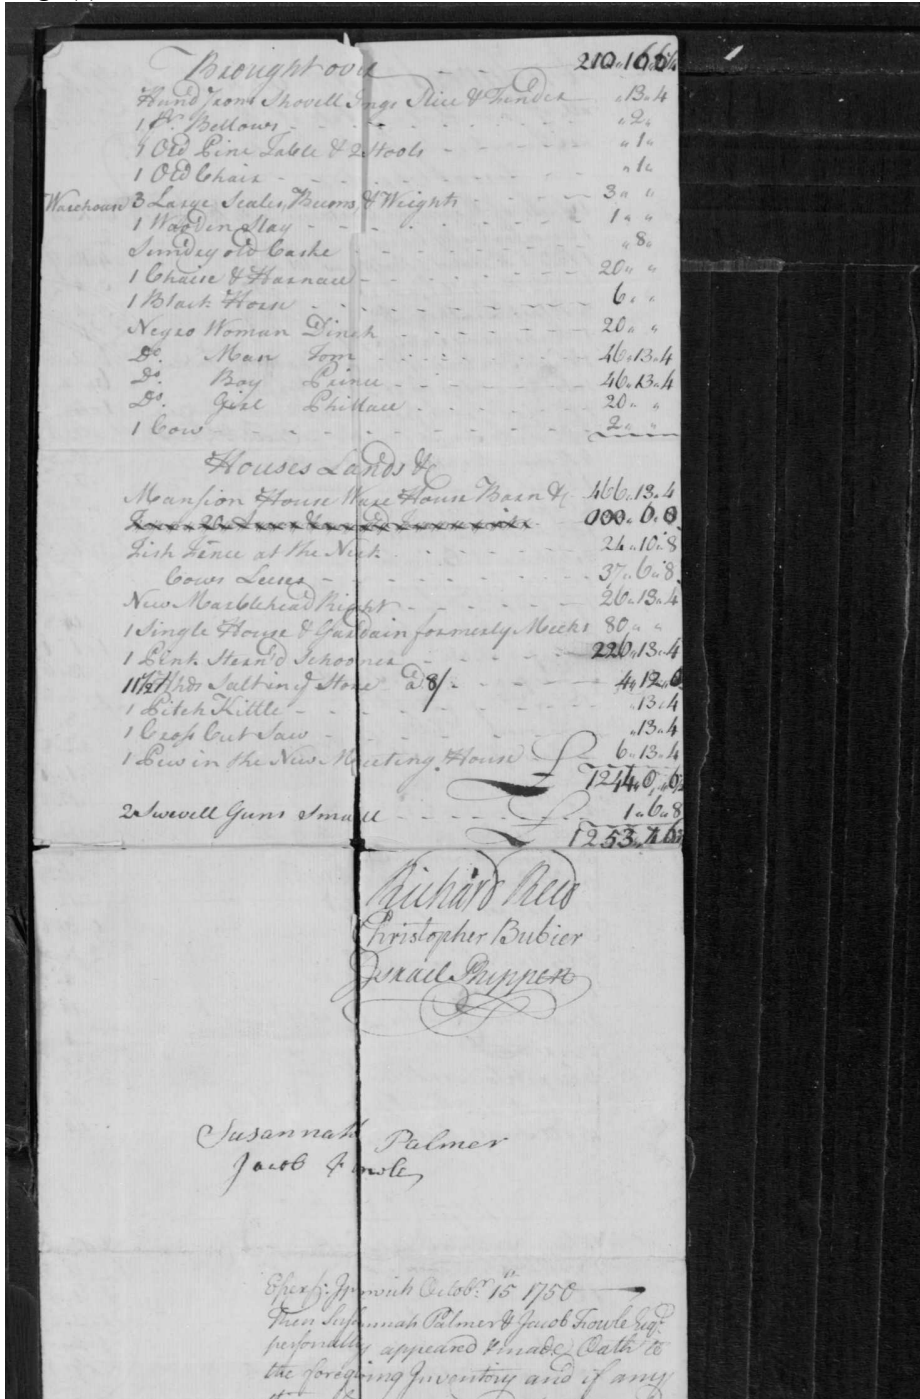 Brought over - - - 210 " 16 " 6½
Hand Irons Shovell Tngs Slice & Fender " 13 " 4
1 Pr. Bellows - - - " 2 "
1 Old Pine Table & 2 Stools - - - " 1 "
1 Old Chair - - - " 1 "
Warehouse 3 Large Scales, Beems, & Weights - - - 3 " "
1 Wooden Stay - - - 1 " "
Sundry old Caske " 8 "
1 Chaise & Harnace - - - 20 " "
1 Black Horse - - - 6 " "
Negro Woman Dinah - - - 20 " "
Do. Man Tom - - - 46 " 13 " 4
Do. Boy Prince - - - 46 " 13 " 4
Do. Girl Phillace - - - 20 " "
1 Cow - - - 2 " "
Houses Lands &c
Mansion House Ware House Barn &c 466 " 13 " 4
000 " 0 " 0
Fish Fence at the Neck - - - 24 " 10 " 8
Cows Leeses - - - 37 " 6 " 8
New Marblehead Right - - - 26 " 13 " 4
1 Single House & Gardain formerly Meeks 80 " "
1 Pink Stern'd Schooner - - - 226 " 13 " 4
11½ Hhds Salt in ye Store @ 8/ - - 4 " 12 " 0
1 Pitch Kittle - - - " 13 " 4
1 Cross Cut Saw - - - " 13 " 4
1 Pew in the New Meeting House £ 6 " 13 " 4
£ 1244 " 0 " 6½
2 Swevell Guns Small - - - 1 " 6 " 8
£ 1253
Richard Reed
Christopher Bubier
Israel Phippen
Susannah Palmer
Jacob Fowle
Essex ss: Ipswich Octobr. 15th 1750
Then Susannah Palmer & Jacob Fowle Esqr.
personally appeared & made Oath to
the foregoing Inventory and if any